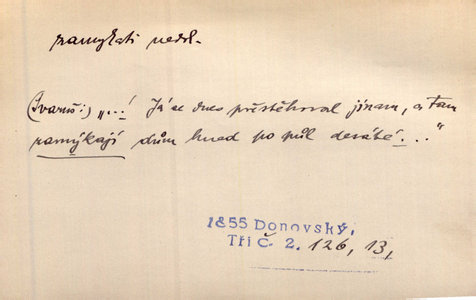 zamykati nedok.
(Ivanš:) „...! Já se dnes přestěhoval jinam, a tam
zamýkají dům hned po půl desáté. ..."
1855 Donovský,
Tři č. 2. 126, 13,